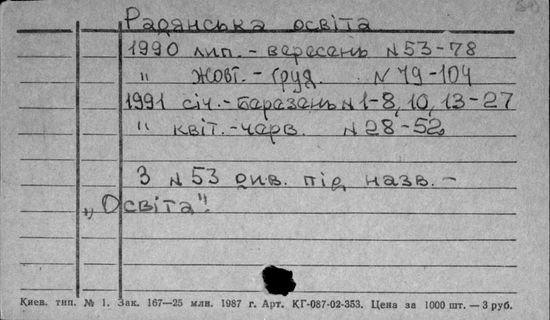 Радянська освіта
1990 лип. - вересень N 53-78
" жовт. - груд. N 79-104
1991 січ. - баразень N 1-8, 10, 13-27
" квіт. - черв. N 28-52
З N 53 див. під назв. -
„Освіта".
Киев. тип. № 1. Зак. 167—25 млн. 1987 г. Арт. КГ-087-02-353. Цена за 1000 шт. — 3 руб.